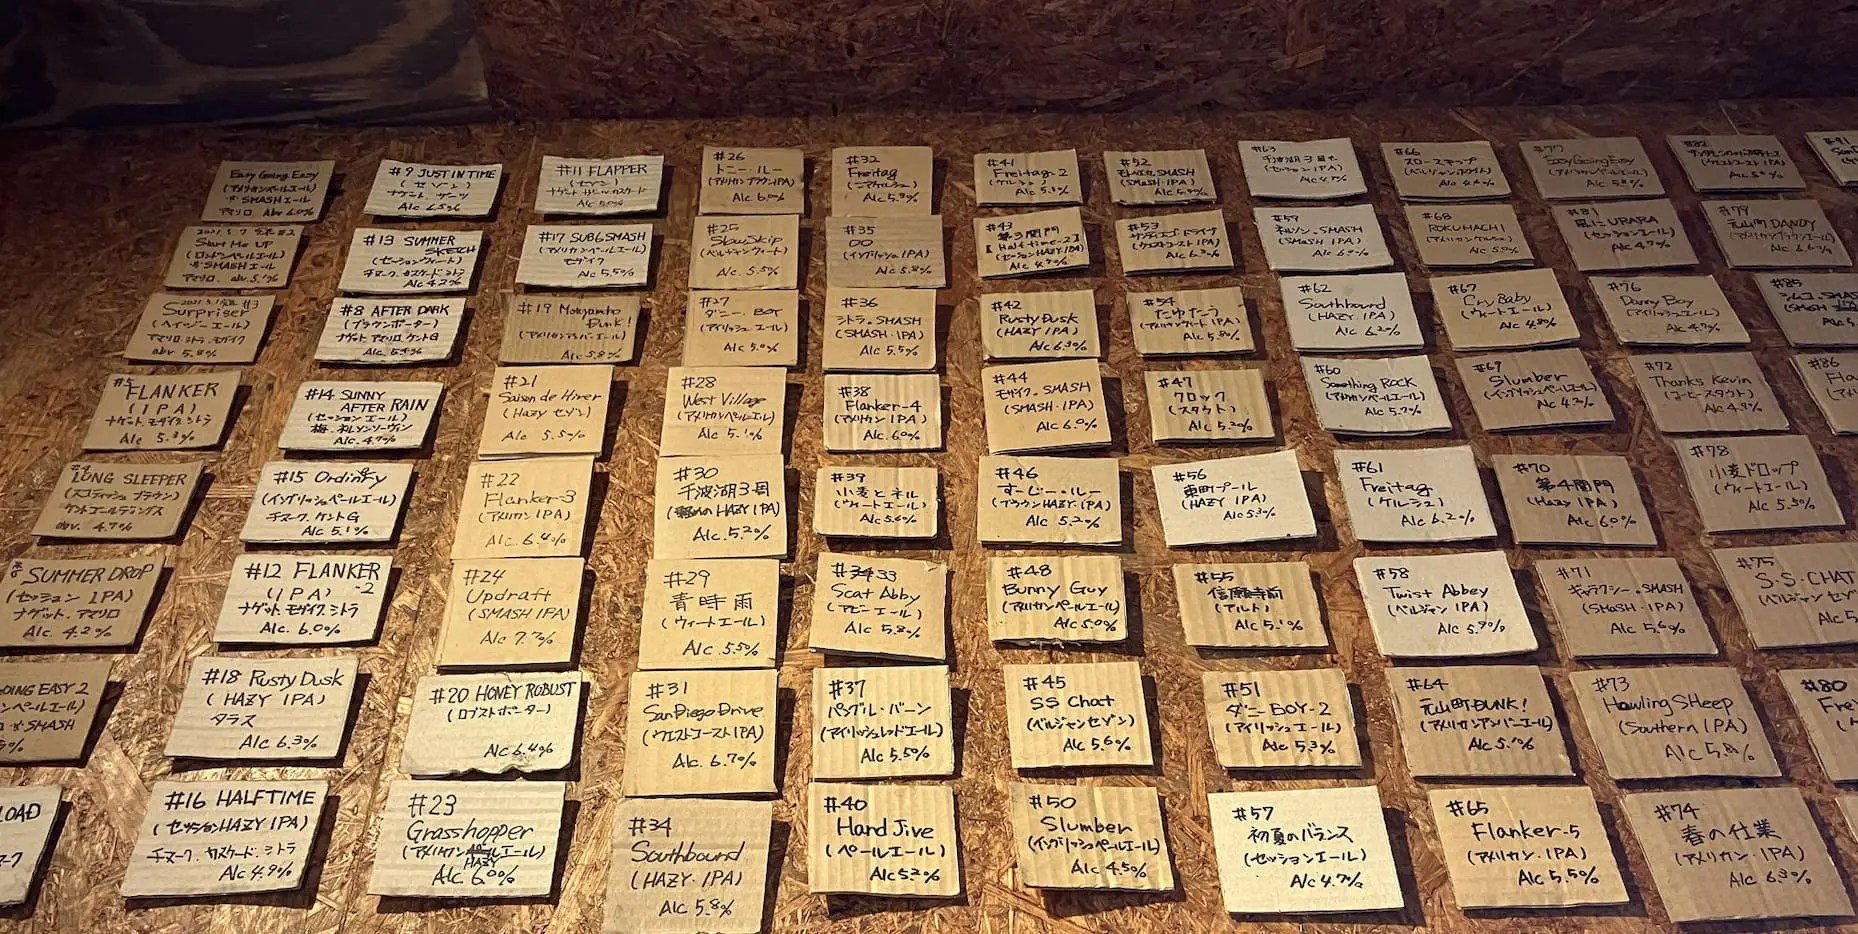 Easy Going Easy
(アメリカンペールエール)
SMASHエール
アマリロ Abv 6.0%
Start Me UP
SMASHエール
アマリロ abv. 5.1%
#3
Surpriser
(ヘイジーエール)
アマリロ・シトラ・モザイク
abv 5.8%
FLANKER
(IPA)
ナゲット.モザイク.シトラ
Alc 5.3%
LONG SLEEPER
(スコティッシュ ブラウン)
ケントゴールディングス
abv. 4.7%
SUMMER DROP
(セッション IPA)
ナゲット.アマリロ
Alc. 4.2%
GOING EASY 2
SMASH
LOAD
#9 JUST IN TIME
(セゾン)
Alc 6.5%
#13 SUMMER
SKETCH
(セッションウィート)
チヌーク.カスケード.シトラ
Alc 4.2%
#8 AFTER DARK
(ブラウンポーター)
ナゲット アマリロ ケントG
#14 SUNNY
AFTER RAIN
(セッション エール)
梅.ネルソンソーヴィン
Alc 4.7%
#15 Ordinry
(イングリッシュペールエール)
チヌーク.ケントG
Alc 5.1%
#12 FLANKER
-2
(IPA)
ナゲット モザイク シトラ
Alc. 6.0%
#18 Rusty Dusk
(HAZY IPA)
タラス
Alc 6.3%
#16 HALFTIME
(セッションHAZY IPA)
チヌーク.カスケード.シトラ
Alc 4.9%
#11 FLAPPER
(セゾン)
Alc 5.0%
#17 SUB6SMASH
(アメリカンペールエール)
モザイク
Alc 5.5%
#19 Motoyamacho
Dunk!
(アメリカンアンバーエール)
Alc 5.8%
#21
Saison de Hiver
(Hazy セゾン)
Alc 5.5%
#22
Flanker-3
(アメリカン IPA)
Alc 6.4%
#24
Updraft
(SMASH IPA)
Alc 7.7%
#20 HONEY ROBUST
(ロブストポーター)
Alc 6.4%
#23
Grasshopper
HAZY
Alc 6.0%
#26
トニー・ルー
(アメリカン ブラウンIPA)
Alc 6.0%
#25
Slow Skip
(ベルジャンウィート)
Alc. 5.5%
#27
ダニー・BOY
(アイリッシュ エール)
Alc 5.0%
#28
West Village
(アメリカンペールエール)
Alc 5.1%
#30
千波湖3周
Alc. 5.2%
#29
青時雨
(ウィートエール)
Alc 5.5%
#31
San Diego Drive
(ウエストコーストIPA)
Alc. 6.7%
#34
Southbound
(HAZY・IPA)
Alc 5.8%
#32
Freitag
Alc 5.3%
#35
00
(イングリッシュIPA)
Alc 5.8%
#36
シトラ。SMASH
(SMASH・IPA)
Alc 5.5%
#38
Flanker-4
(アメリカン IPA)
Alc. 6.0%
#39
小麦とネル
(ウィートエール)
Alc 5.6%
33
Scat Abby
(アビーエール)
Alc 5.8%
#37
バングル・バーン
(アイリッシュレッドエール)
Alc 5.5%
#40
Hand Jive
(ペールエール)
Alc 5.2%
#41
Freitag-2
(ケルシュ)
Alc 5.3%
#43
第3関門
【Half time-2】
(セッションHAZY IPA)
Alc 4.7%
#42
Rusty Dusk
(HAZY IPA)
Alc 6.3%
#44
モザイク.SMASH
(SMASH・IPA)
Alc 6.0%
#46
すーじー・ルー
(ブラウンHAZY.IPA)
Alc 5.2%
#48
Bunny Guy
(アメリカンペールエール)
Alc 5.0%
#45
SS Chat
(ベルジャンセゾン)
Alc 5.6%
#50
Slumber
(イングリッシュペールエール)
Alc 4.5%
#52
SMASH
(SMASH・IPA)
#53
サンディエゴ ドライブ
(ウエストコーストIPA)
Alc 6.3%
#54
たゆたう
Alc 5.8%
#47
クロック
(スタウト)
Alc 5.2%
#56
東町プール
(HAZY IPA)
Alc 5.3%
#55
信願寺前
(アルト)
Alc 5.1%
#51
ダニーBOY-2
(アイリッシュエール)
Alc 5.3%
#57
初夏のバランス
(セッションエール)
Alc 4.7%
#63
千波湖3周
(セッション IPA)
Alc 4.7%
#59
ネルソン.SMASH
(SMASH IPA)
Alc 6.0%
#62
Southbound
(HAZY. IPA)
Alc 6.2%
#60
Something Rock
(アメリカンペールエール)
Alc 5.7%
#61
Freitag
(ケルシュ)
Alc 6.2%
#58
Twist Abbey
(ベルジャン IPA)
Alc 5.9%
#64
元山町DUNK!
(アメリカンアンバーエール)
Alc 5.1%
#65
Flanker-5
(アメリカン.IPA)
Alc 5.5%
#66
スロースキップ
(ベルジャンホワイト)
#68
ROKUHACHI
(アメリカンケルシュ)
Alc 5.5%
#67
Cry Baby
(ウィートエール)
Alc 4.8%
#69
Slumber
(イングリッシュペールエール)
Alc 4.2%
#70
第4関門
(Hazy IPA)
Alc 6.0%
#71
ギャラクシー.SMASH
(SMASH・IPA)
Alc 5.6%
#73
Howling SHeep
(Southern IPA)
Alc 5.8%
#74
春の仕業
(アメリカン・IPA)
Alc 6.3%
#77
Easy Going Easy
(アメリカンペールエール)
Alc 5.8%
#81
風に URARA
(セッションエール)
Alc 4.7%
#76
Danny Boy
(アイリッシュエール)
Alc 4.7%
#72
Thanks Kevin
(コーヒースタウト)
Alc 4.9%
#78
小麦ドロップ
(ウィートエール)
Alc 5.5%
#75
S.S・CHAT
(ベルジャンセゾ
Alc 5.
#80
Fre
#82
(ウエストコーストIPA)
#79
元山町 DANDY
(アメリカンブラウンエール)
Alc 6.6%
#85
シムコ.SMA
#86
Fla
#91